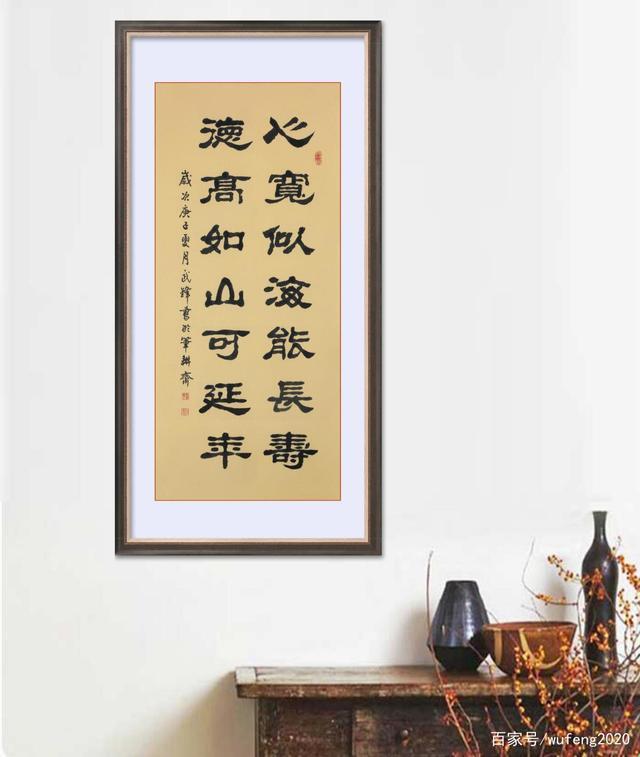 心寬似海能長壽
德高如山可延年
歲次庚子夏月武鋒書於筆耕齋
百家号/wufeng2020